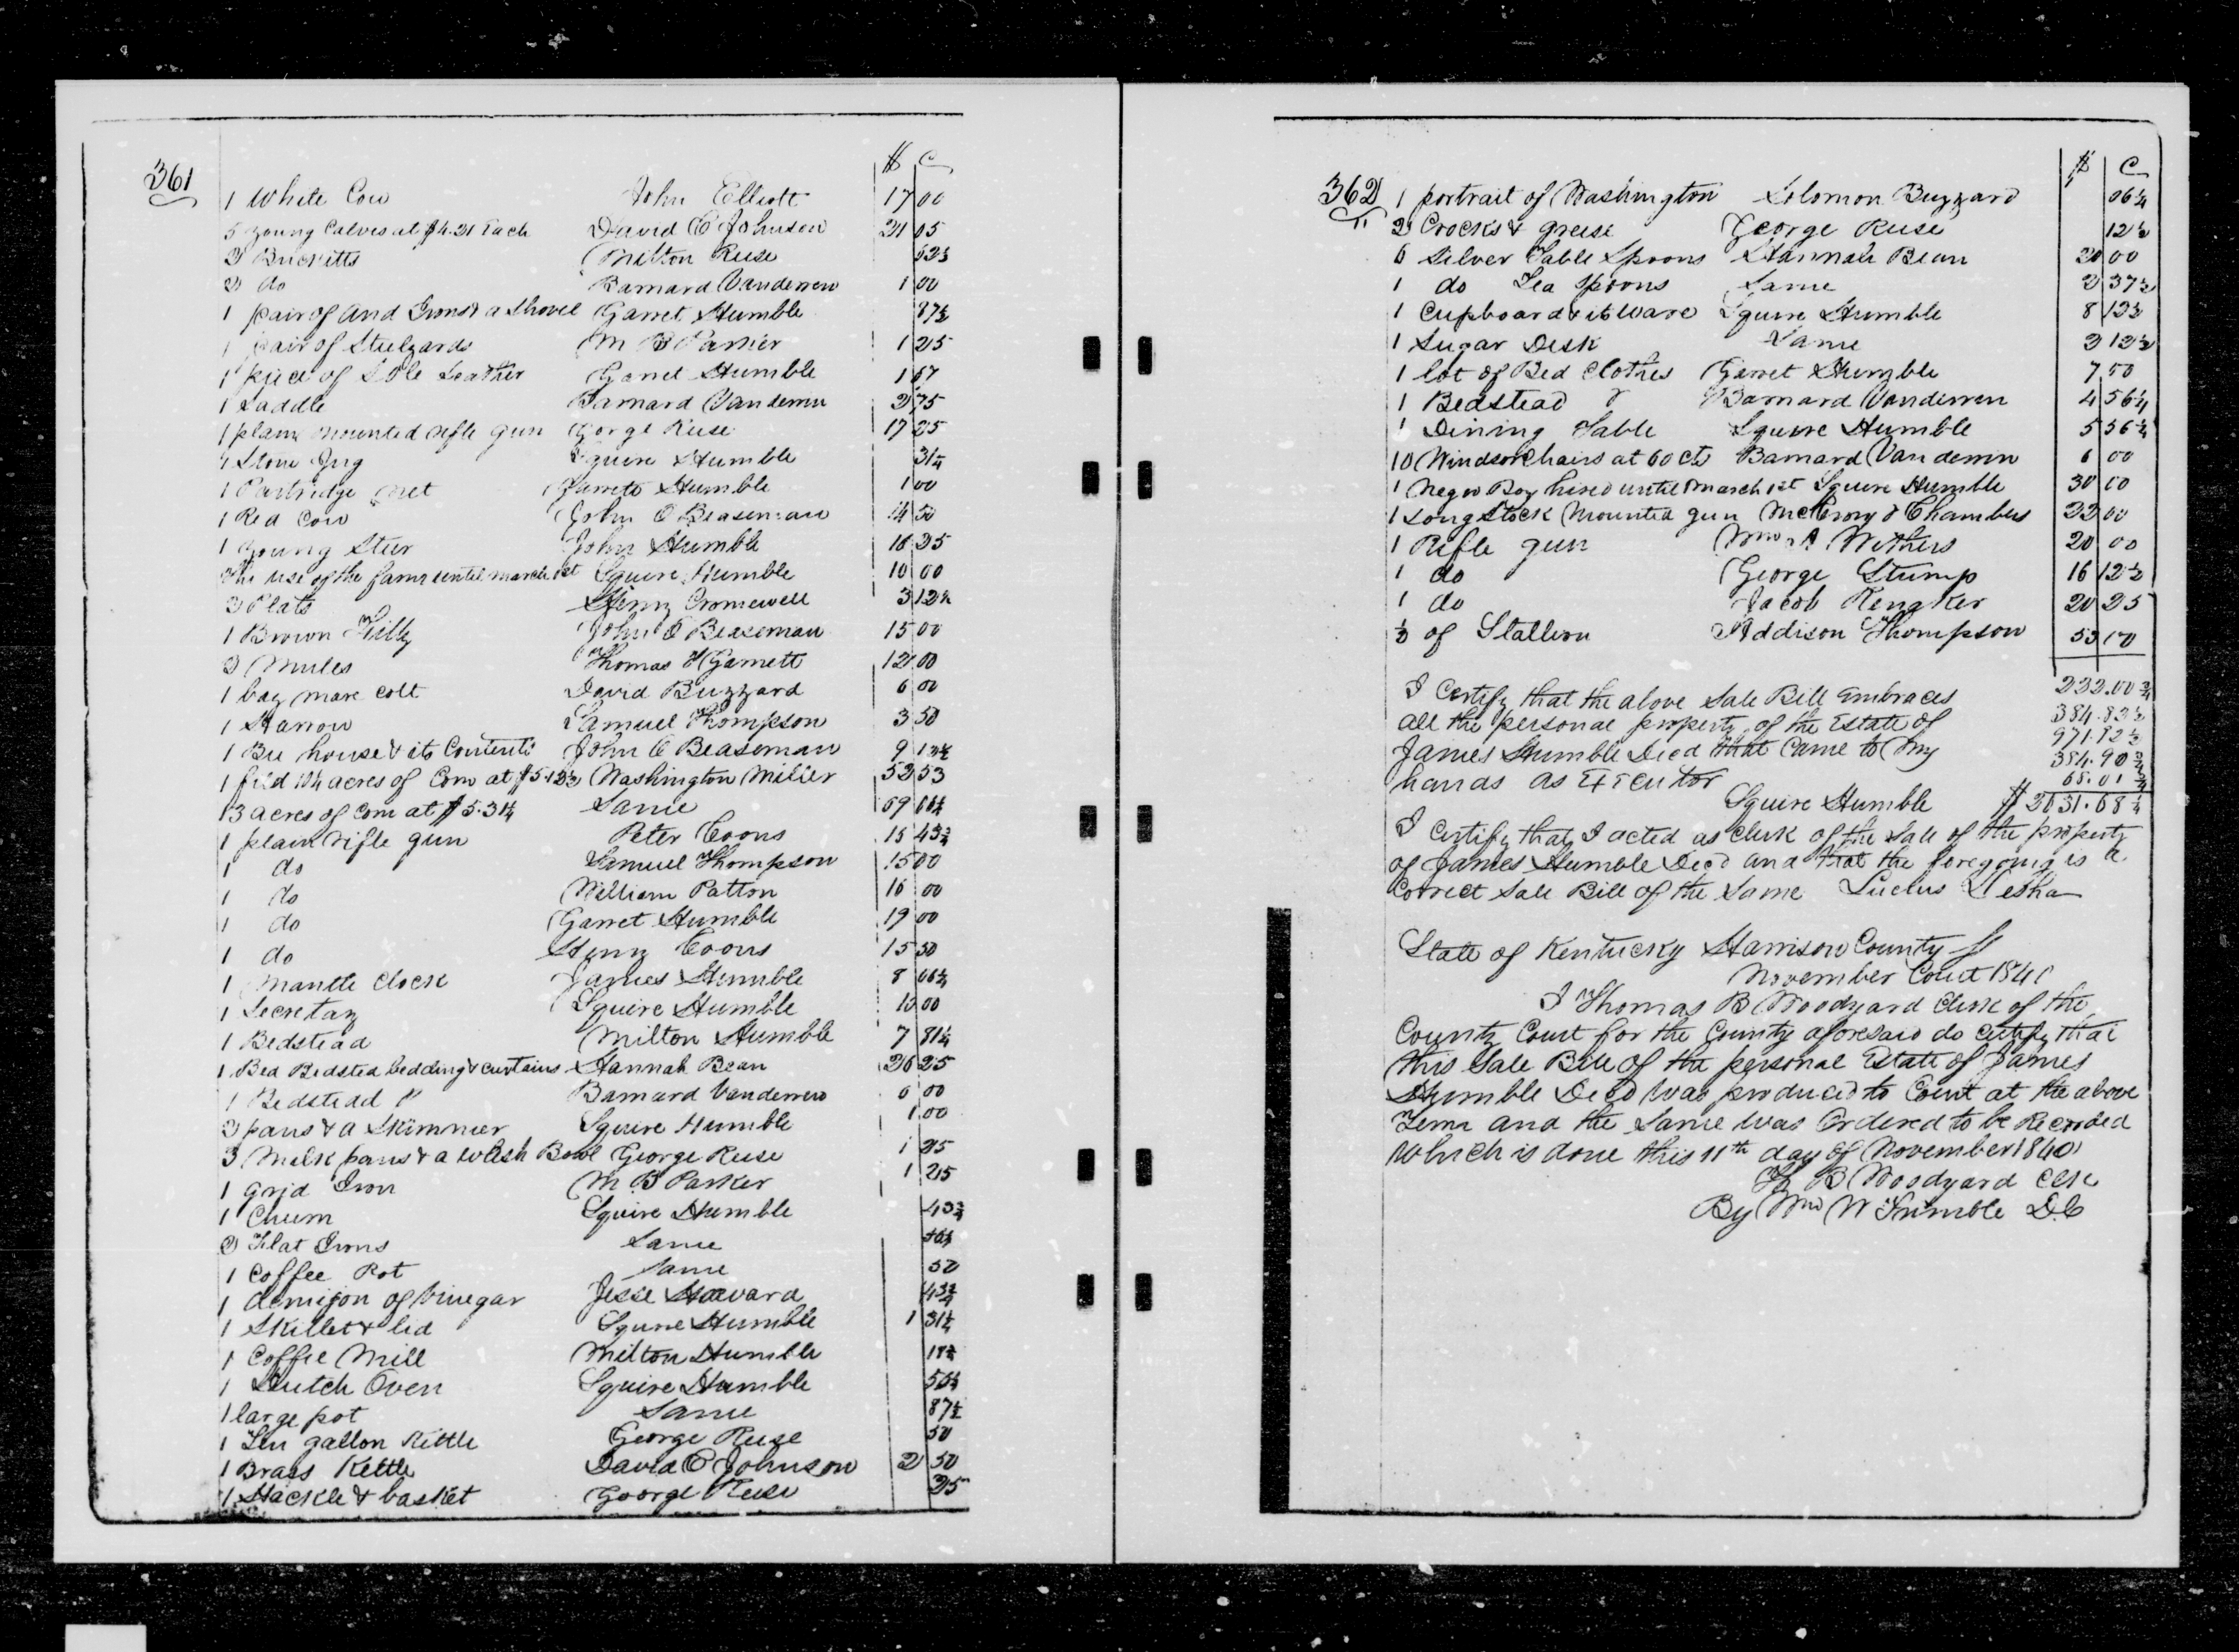 361
$ C
1 White Cow John Elliott 17 00
5 young Calves at $4.21 Each David C Johnson 21 05
2 Bucketts Milton Ruse 62½
2 do Barnard Vanderen 1 00
1 pair of And Irons & a Shovel Garret Humble 87½
1 pair of Stulyards M B Parker 1 25
1 piece of Sole Leather Garret Humble 1 67
1 Saddle Barnard Vanderen 2 75
1 plain mounted rifle gun George Ruse 17 25
1 Stone Jug Squire Humble 31¼
1 Partridge net Garrett Humble 1 00
1 Red Cow John C Beaseman 14 50
1 young Steer John Humble 16 25
The use of the farm until march 1st Squire Humble 10 00
2 Plats Henry Cromewell 3 12½
1 Brown Filly John C Beaseman 15 00
2 Mules Thomas H Garnett 121 00
1 bay mare colt David Buzzard 6 00
1 Harrow Samuel Thompson 3 50
1 Bee house & its Contents John C Beaseman 9 12½
1 field 10¼ acres of Corn at $5.12½ Washington Miller 52 53
13 acres of Corn at $5.31¼ Same 69 06¼
1 plain rifle gun Peter Coons 15 43¾
1 do Samuel Thompson 15 00
1 do William Patton 16 00
1 do Garret Humble 19 00
1 do Henry Coons 15 50
1 Mantle Clock James Humble 8 06¼
1 Secretary Squire Humble 10 00
1 Bedstead Milton Humble 7 81¼
1 Bed Bedsted bedding & curtains Hannah Bean 26 25
1 Bedstead Barnard Vanderen 6 00
3 pans & a Skimmer Squire Humble 1 00
3 Milk pans & a Wash Bowl George Ruse 1 25
1 Grid Iron M B Parker 1 25
1 Churn Squire Humble 43¾
2 Flat Irons Same
1 Coffee Pot Same 50
1 demijon of Vinegar Jesse Howard 43¾
1 Skillet & lid Squire Humble 1 31¼
1 Coffee Mill Milton Humble 18¾
1 Dutch Oven Squire Humble 56¼
1 large pot Same 87½
1 Ten gallon Kittle George Ruse 50
1 Brass Kettle David C Johnson 2 50
1 Hackle & basket George Ruse 25
362
$ C
1 portrait of Washington Solomon Buzzard 06¼
2 Crocks & grease George Ruse 12½
6 Silver Table Spoons Hannah Bean 20 00
1 do Tea Spoons Same 2 37½
1 Cupboard & its Ware Squire Humble 8 12½
1 Sugar Desk Same 2 12½
1 lot of Bed Clothes Garret Humble 7 50
1 Bedstead Barnard Vanderen 4 56¼
1 Dining Table Squire Humble 5 56¼
10 Windsor Chairs at 60 cts Barnard Vanderen 6 00
1 Negro Boy hired until March 1st Squire Humble 30 00
1 Long Stock Mounted gun McCrory & Chambers 22 00
1 Rifle gun Wm A Withers 20 00
1 do George Stump 16 12½
1 do Jacob Renaker 20 25
½ of Stallion Addison Thompson 53 00
I Certify that the above Sale Bill Embraces 232.00¾
all the personal property of the Estate of 384.83½
James Humble Decd that Came to my 971.82½
hands as Executor 384.90¾
68.01¾
Squire Humble $2031.68¼
I Certify that I acted as Clerk of the Sale of the property
of James Humble Decd and that the foregoing is a
Correct Sale Bill of the Same Lucius Desha
State of Kentucky Harrison County
November Court 1840
I Thomas B Woodyard Clerk of the
County Court for the County aforesaid do certify that
this Sale Bill of the personal Estate of James
Humble Decd was produced to Court at the above
Term and the Same was Ordered to be Recorded
Which is done this 11th day of November 1840
Th B Woodyard Clk
By Wm W Trimble D.C